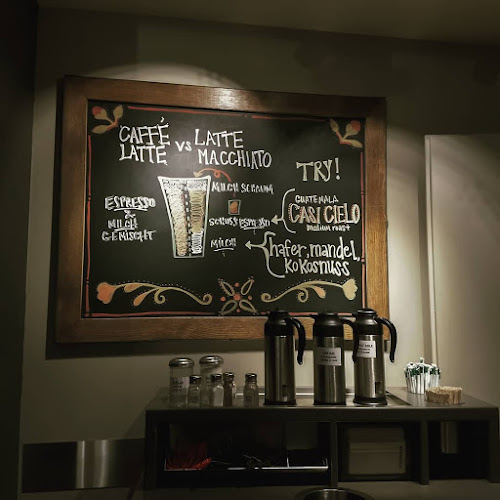 CAFFÉ
LATTE
VS
LATTE
MACCHIATO
TRY!
ESPRESSO
&
MILCH
GEMISCHT
MILCH SCHAUM
SCHUSS ESPRESSO
MILCH
GUATEMALA
CASI CIELO
medium roast
hafer, mandel,
kokosnuss